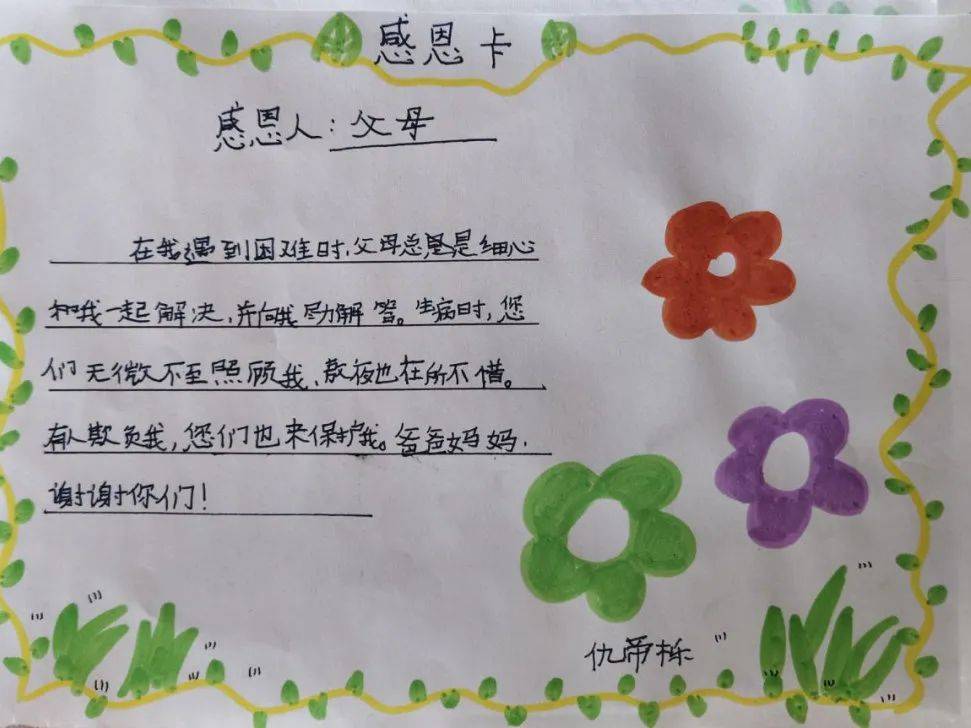 感恩卡
感恩人：父母
在我遇到困难时，父母总是是细心
和我一起解决，并向我尽力解答。生病时，您
们无微不至照顾我，熬夜也在所不惜。
有人欺负我，您们也来保护我。爸爸妈妈，
谢谢你们！
仇帝栎